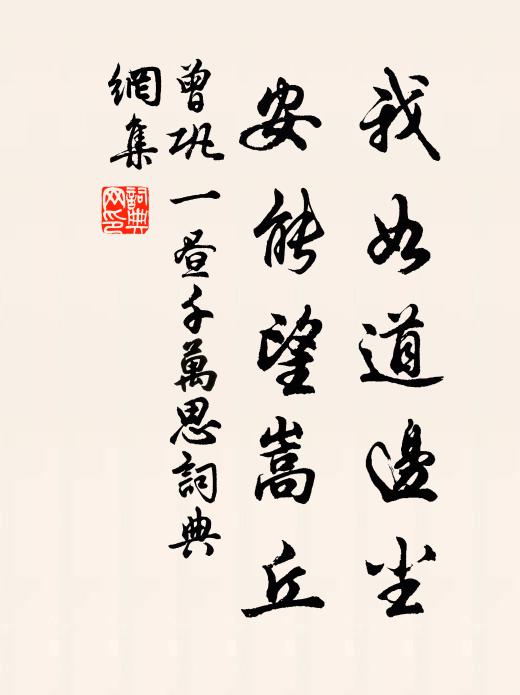 我如道邊尘
安能望嵩丘
曾巩一昼千萬思詞典
網集
詞典网印